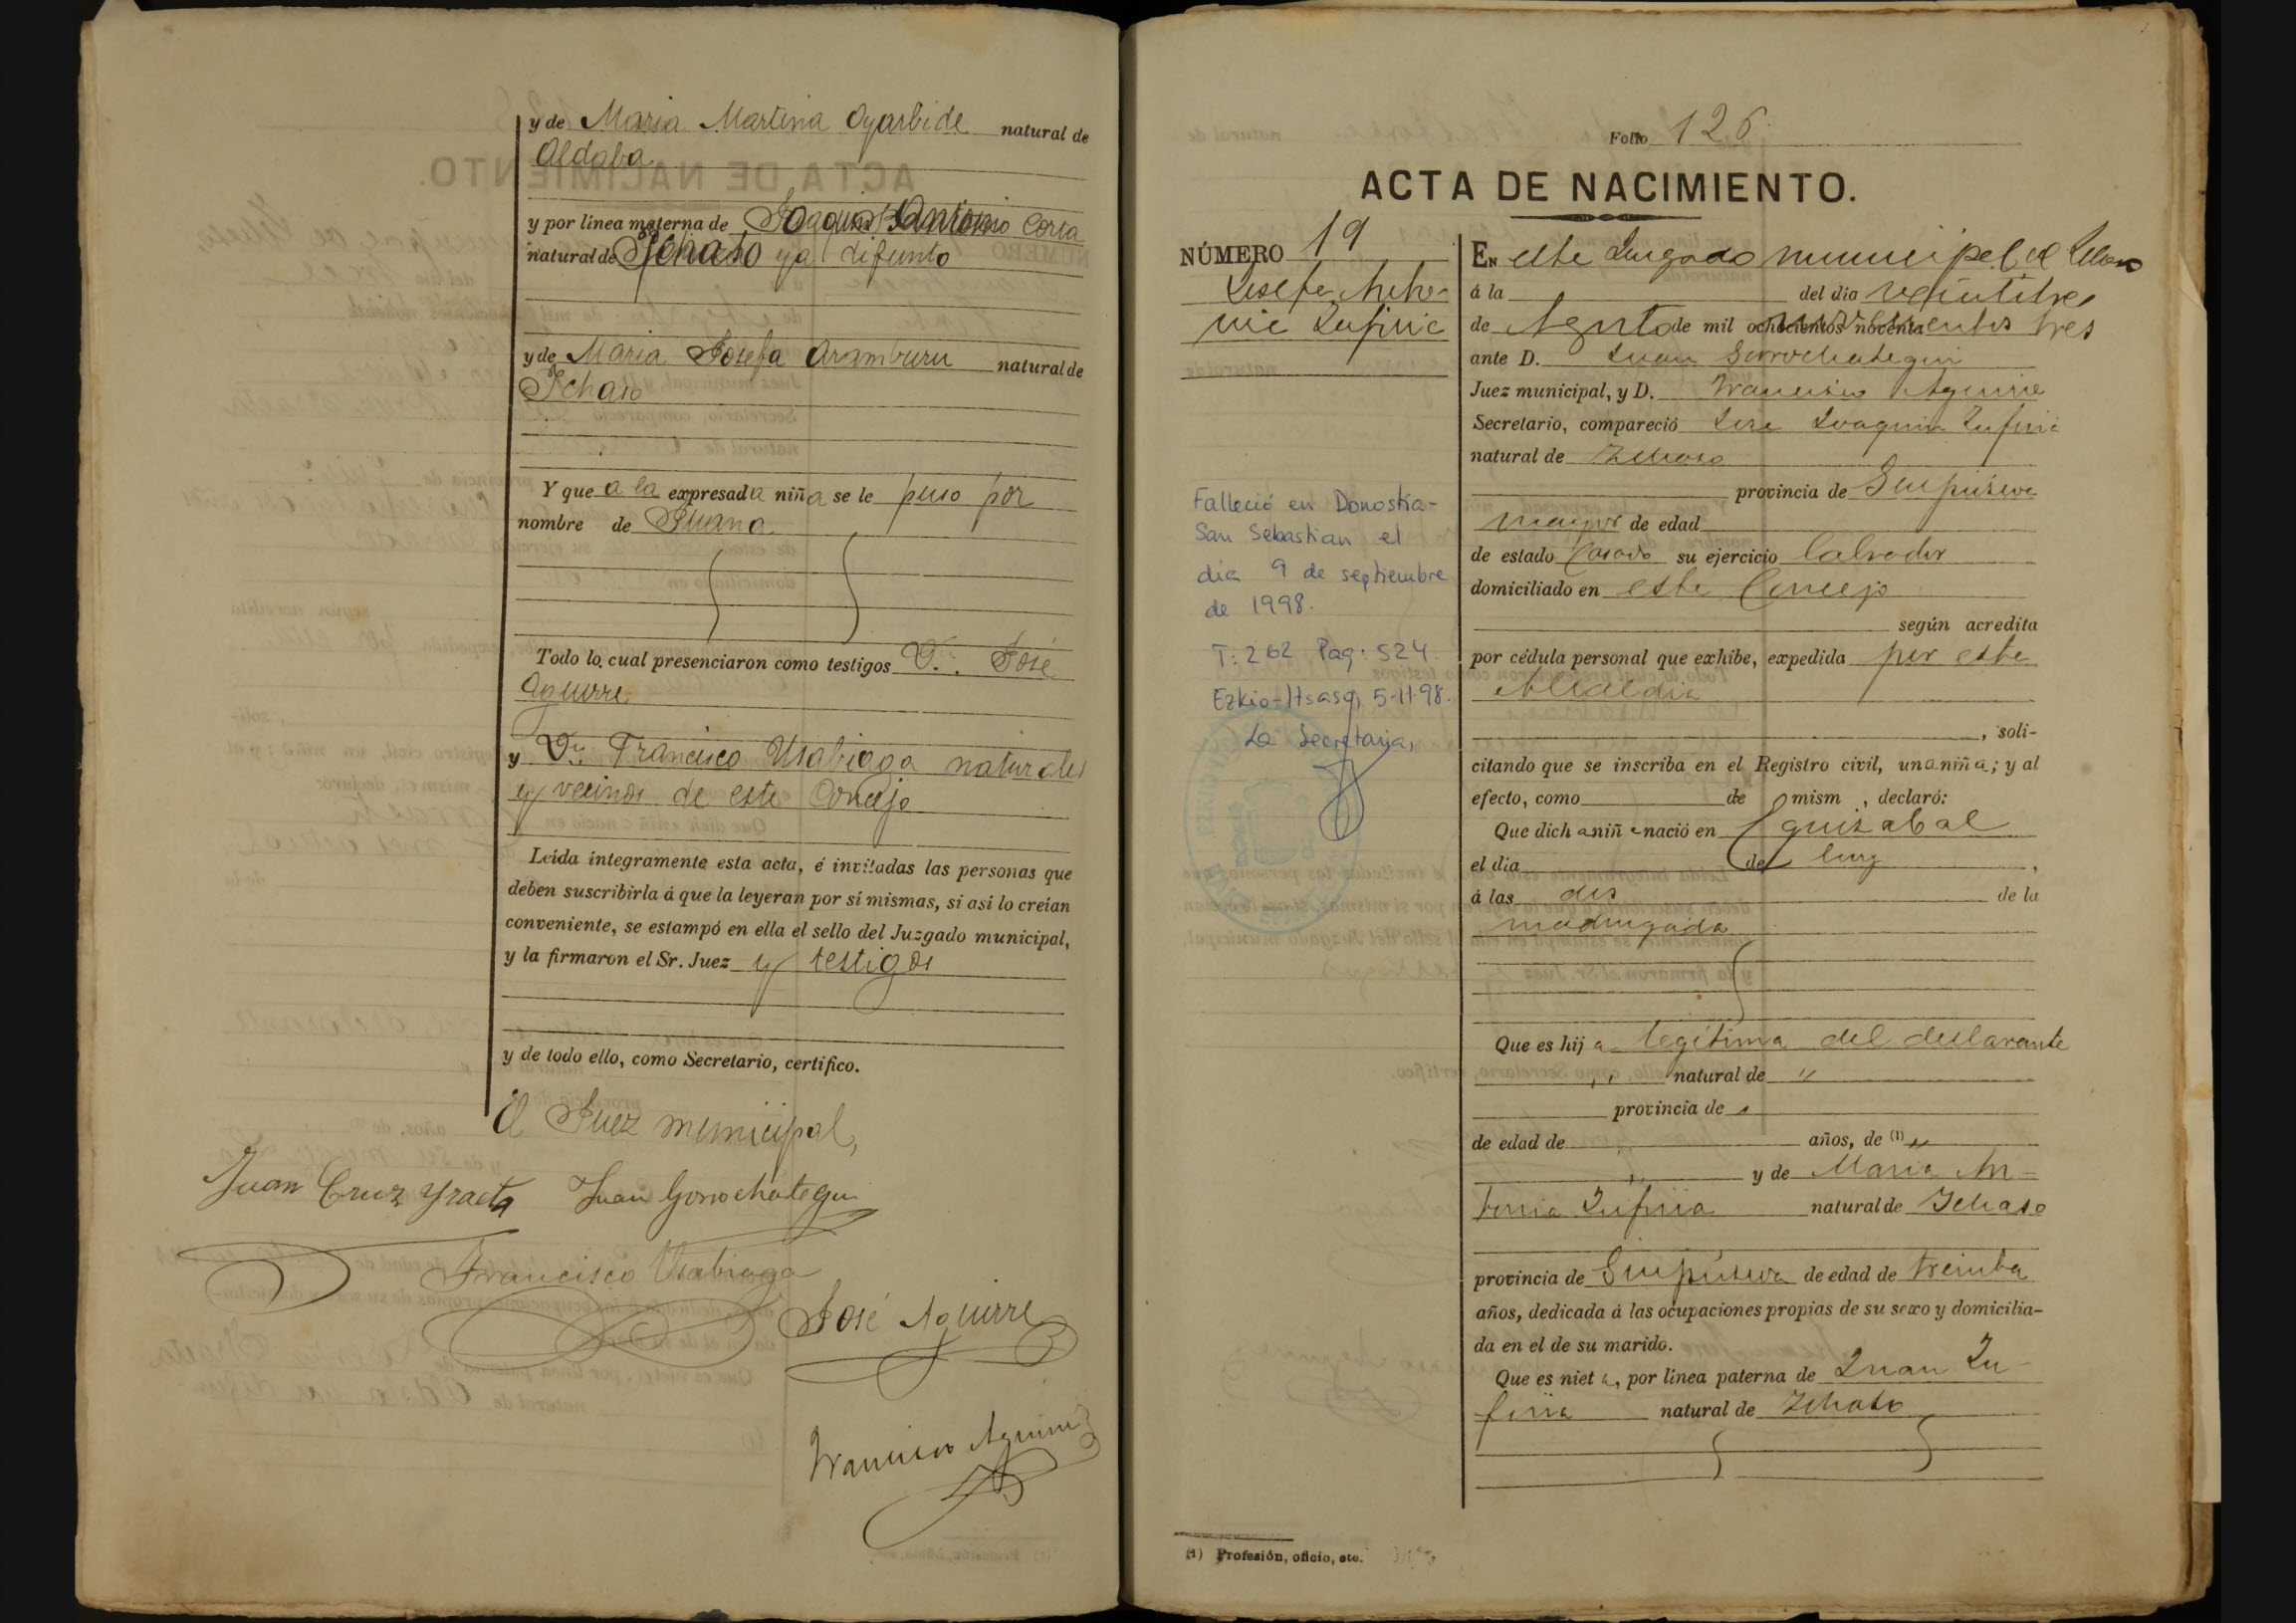 y de Maria Martina Oyarbide natural de
Aldaba
y por línea materna de Joaquin Antonio Corta
natural de Ichaso ya difunto
y de Maria Josefa Aramburu natural de
Ichaso
Y que a la expresada niña se le puso por
nombre de Juana
Todo lo cual presenciaron como testigos D. José
Aguirre
y D. Francisco Usabiaga naturales
y vecinos de este Concejo
Leída íntegramente esta acta, é invitadas las personas que
deben suscribirla á que la leyeran por sí mismas, si así lo creían
conveniente, se estampó en ella el sello del Juzgado municipal,
y la firmaron el Sr. Juez y testigos
y de todo ello, como Secretario, certifico.
El Juez municipal,
Juan Cruz Yraeta Juan Gorrochategui
Francisco Usabiaga
José Aguirre
Francisco Aguirre
Folio 126
ACTA DE NACIMIENTO.
NÚMERO 19
Josefa Anto-
nia
Falleció en Donostia-
San Sebastian el
día 9 de septiembre
de 1998.
T: 262 Pag: 524.
Ezkio-Itsaso, 5-11-98.
La Secretaria,
EN este Juzgado municipal de Ichaso
á la del dia veintitres
de Agosto de mil ochocientos noventa novecientos tres
ante D. Juan Gorrochategui
Juez municipal, y D. Francisco Aguirre
Secretario, compareció José Joaquin
natural de Ichaso
provincia de Guipúzcoa
mayor de edad
de estado Casado su ejercicio labrador
domiciliado en este Concejo
según acredita
por cédula personal que exhibe, expedida por esta
Alcaldia
, soli-
citando que se inscriba en el Registro civil, una niña; y al
efecto, como de mism , declaró:
Que dicha niña nació en Eguizabal
el dia de hoy,
á las dos de la
madrugada
Que es hija legítima del declarante
,, natural de "
provincia de "
de edad de años, de (1) "
y de Maria An-
tonia natural de Ichaso
provincia de Guipúzcoa de edad de treinta
años, dedicada á las ocupaciones propias de su sexo y domicilia-
da en el de su marido.
Que es nieta, por línea paterna de Juan
natural de Ichaso
(1) Profesión, oficio, etc.